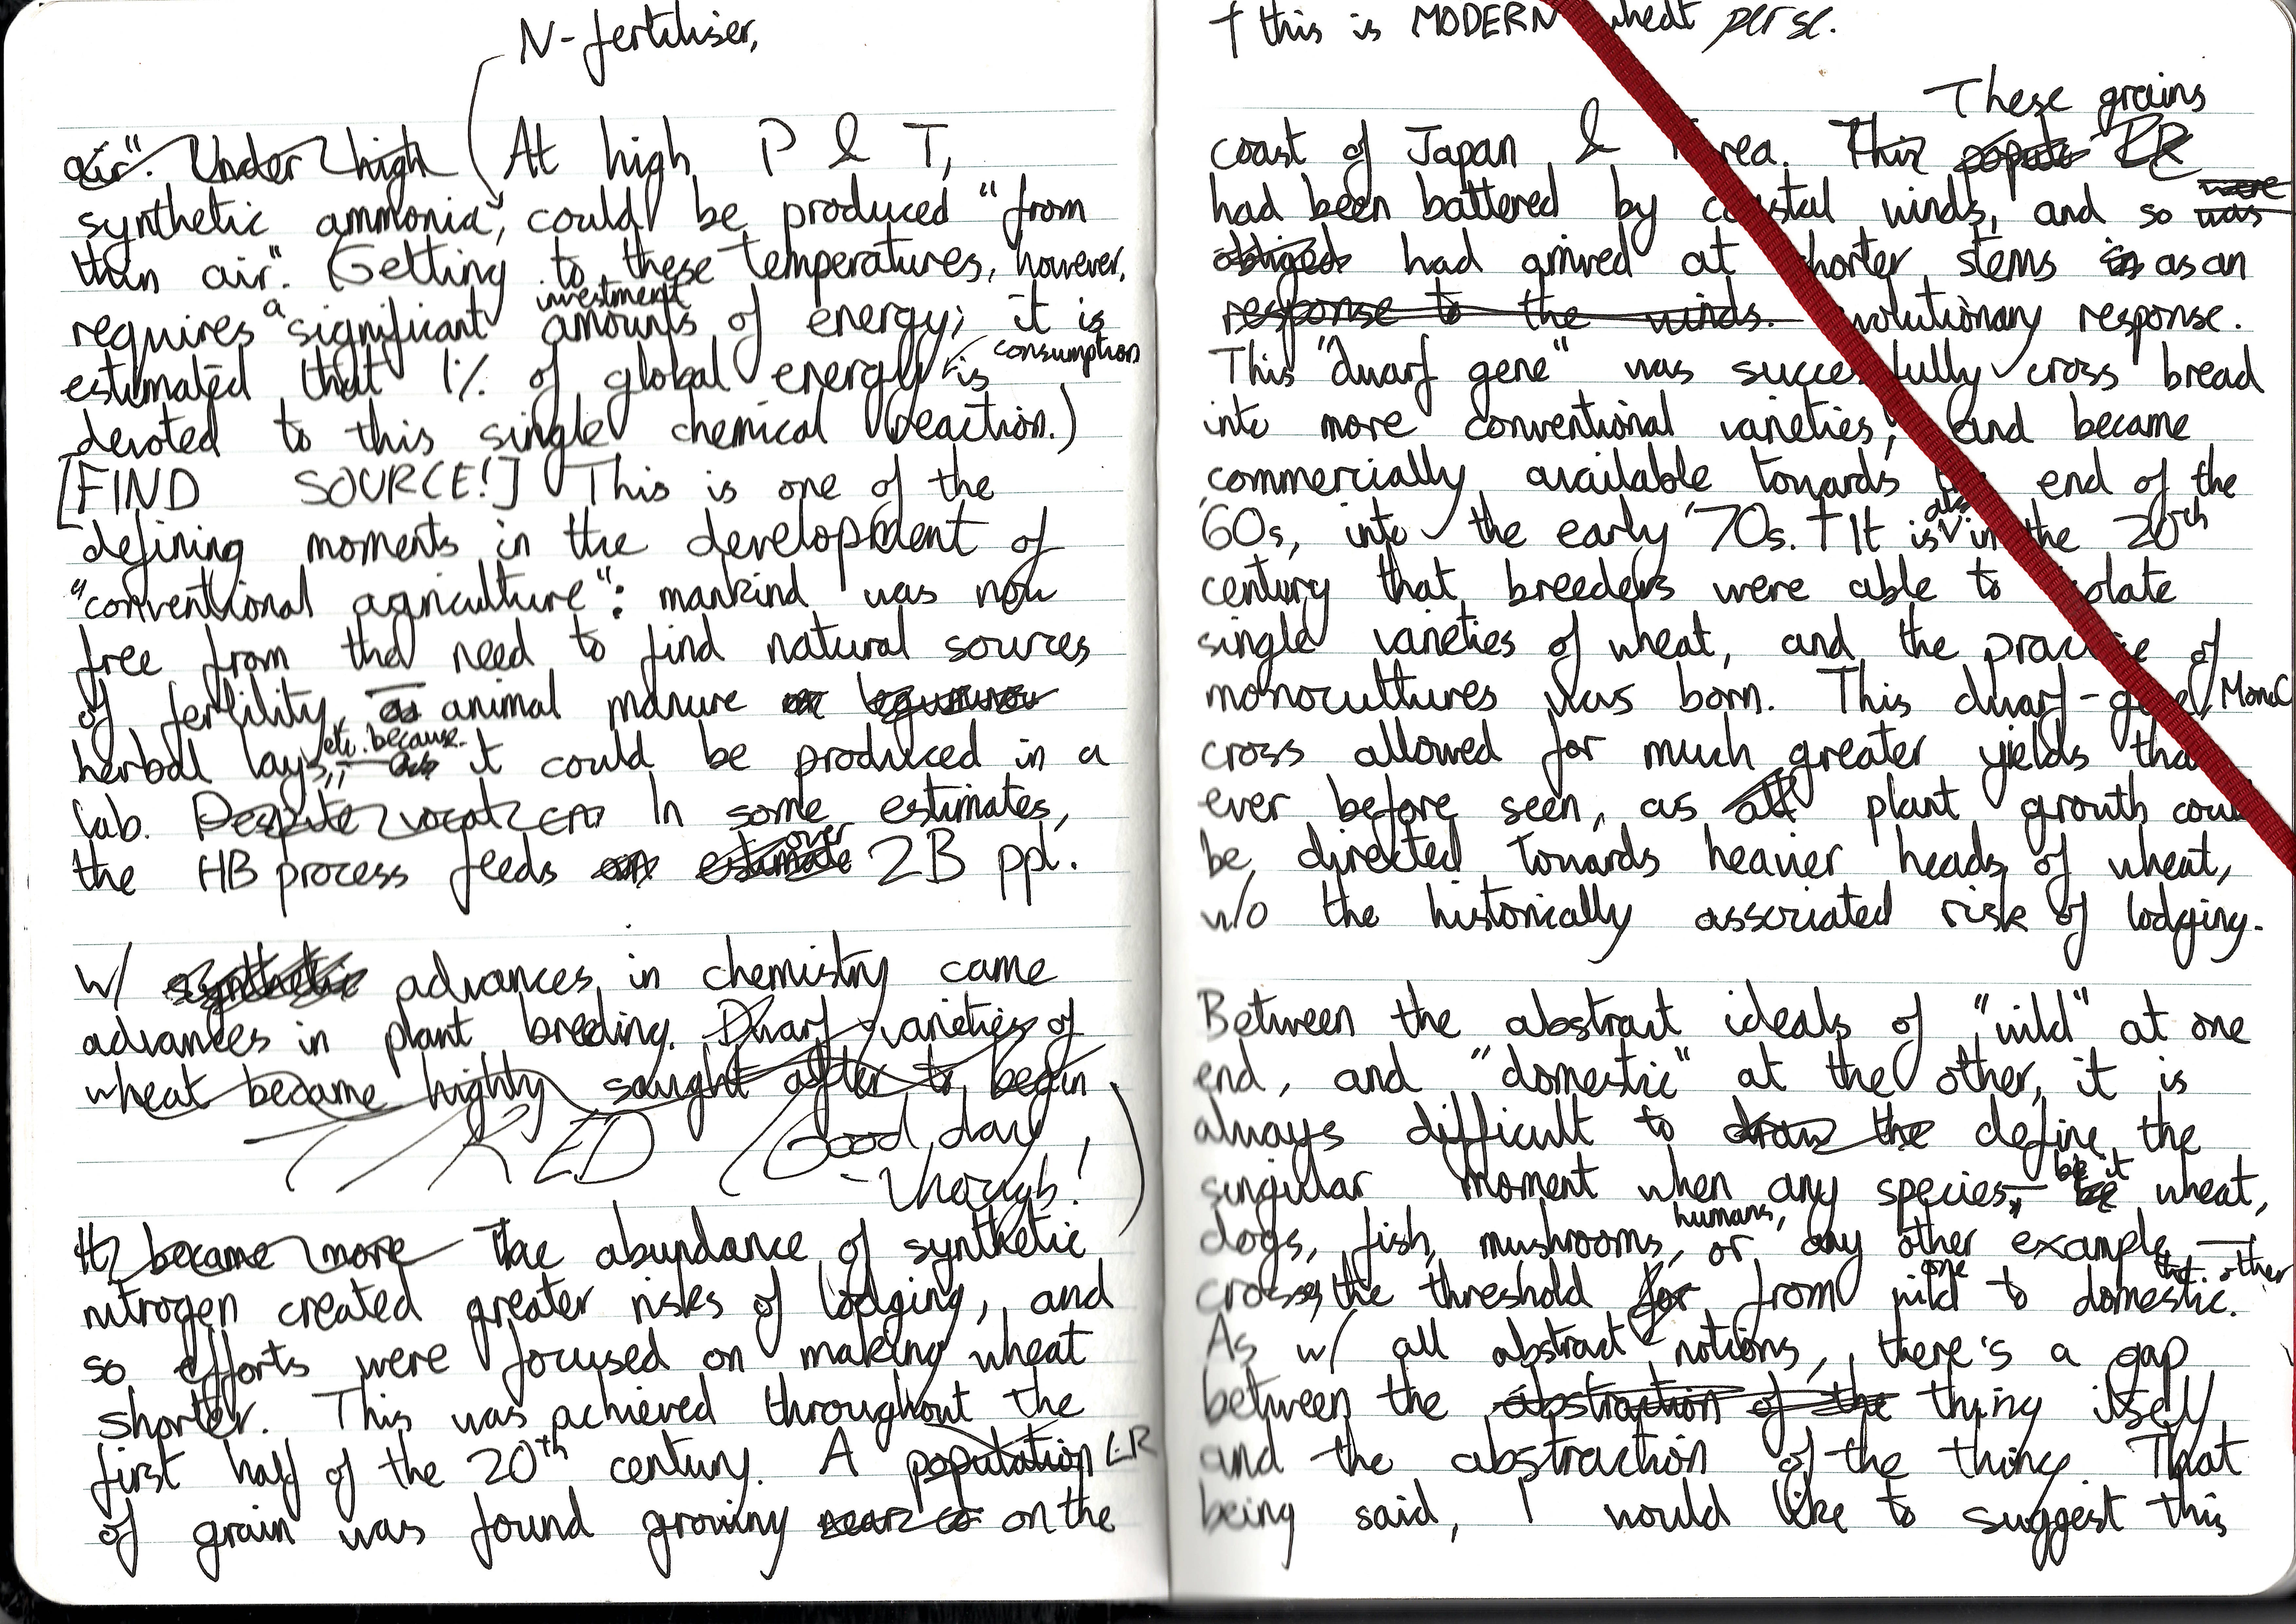 N-fertiliser,
air". Under high (At high P & T,
synthetic ammonia, could be produced "from
thin air". (Getting to these temperatures, however,
requires a significant investment amounts of energy; it is
consumption
estimated that 1% of global energy is
devoted to this single chemical reaction.)
[FIND SOURCE!] This is one of the
defining moments in the development of
"conventional agriculture": mankind was now
free from the need to find natural sources
of fertility, — as animal manure or
herbal lays, etc. — because as it could be produced in a
lab. Despite In some estimates,
over
the HB process feeds an estimate 2B ppl.
w/ synthetic advances in chemistry came
advances in plant breeding. Dwarf varieties of
wheat became highly sought after to begin
TIRED (Good day,
though!)
It became more The abundance of synthetic
nitrogen created greater risks of lodging, and
so efforts were focused on making wheat
shorter. This was achieved throughout the
first half of the 20th century. A population LR
of grain was found growing near co on the
† this is MODERN wheat per se.
These grains
coast of Japan & rea. This LR
were
had been battered by coastal winds, and so was
obliged had arrived at shorter stems in as an
response to the winds. volutionary response.
This "dwarf gene" was successfully cross bread
into more conventional varieties, and became
commercially available towards end of the
also
'60s, into the early '70s. † It is in the 20th
century that breeders were able to olate
single varieties of wheat, and the practice of
monocultures was born. This dwarf-gene, MonoC
cross allowed for much greater yields tha
ever before seen, as all plant growth coul
be directed towards heavier heads of wheat,
w/o the historically associated risk of lodging.
Between the abstract ideals of "wild" at one
end, and "domestic" at the other, it is
always difficult to draw the define the
singular moment when any species — be it be wheat,
humans,
dogs, fish, mushrooms, or any other example —
one the other
crosses the threshold for from wild to domestic.
As w/ all abstract notions, there's a gap
between the abstraction of the thing itself
and the abstraction of the thing. That
being said, I would like to suggest this